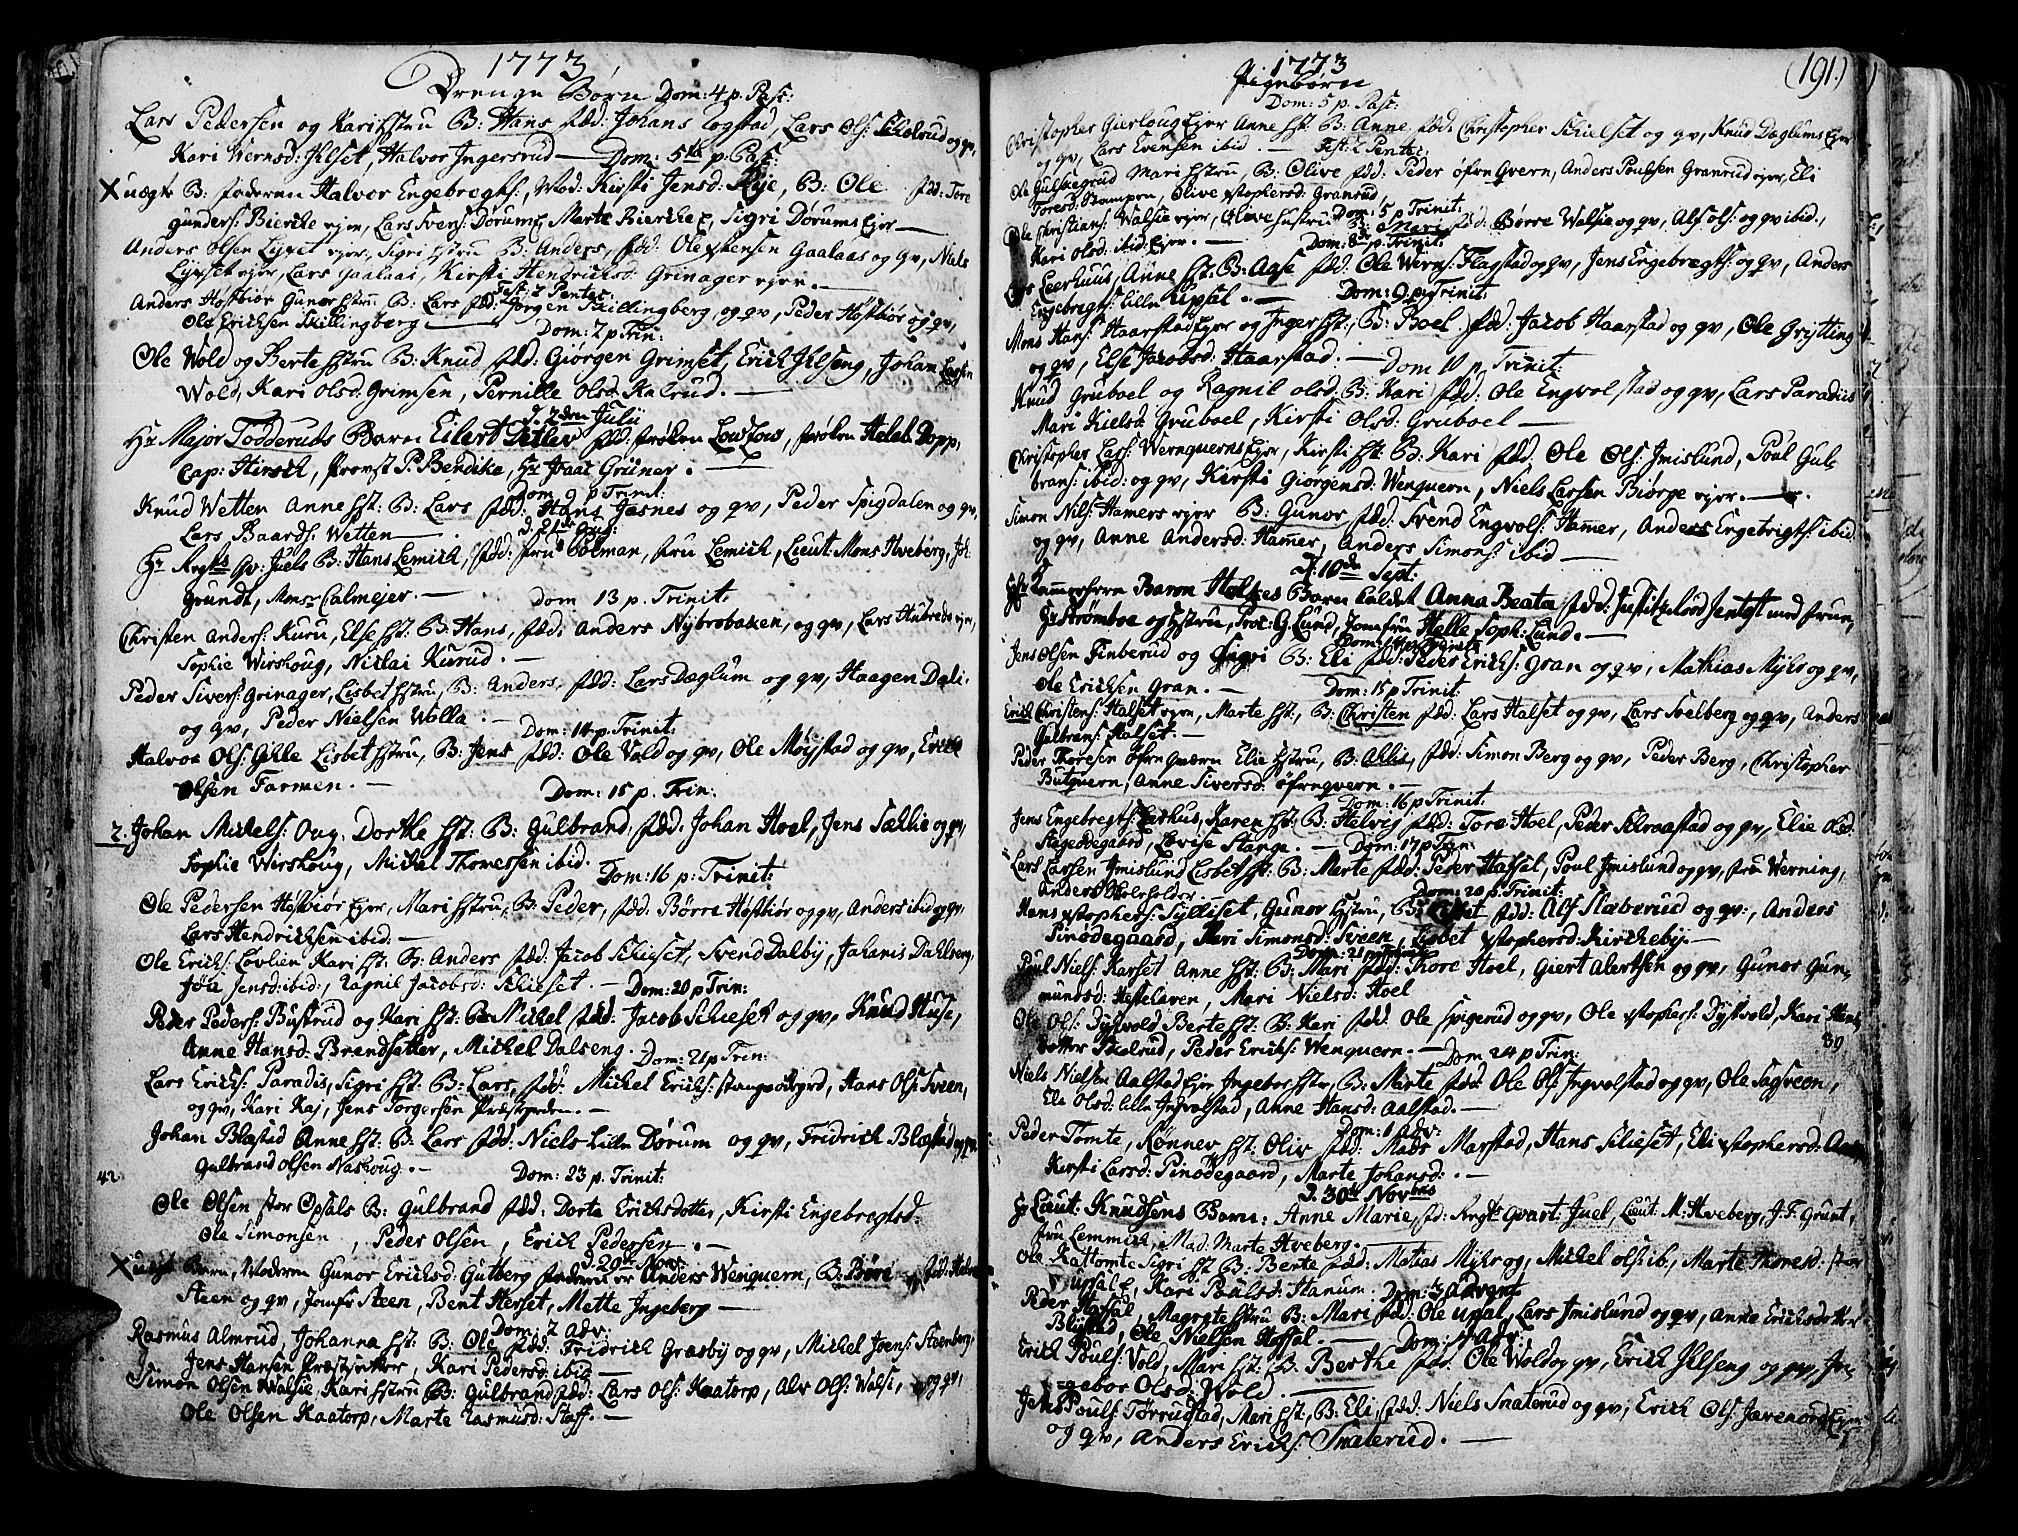 1773
Drenge Børn Dom: 4 p. Pasc:
Lars Pedersen og Kari Hstru B: Hans fad: Johans Løgstad, Lars Ols: Skolrud og qv,
Kari Wernsd: Ilset, Halvor Ingersrud — Dom: 5te p. Pasc:
X uægte B: faderen Halvor Engebregts:, Mod: Kirsti Jensd: Rye, B: Ole fad: Tore
Gunders: Biercke, Lars Svers: Dørum, Marte Biercke, Sigri Dørums Ejer —
Anders Olsen Lyset, Sigri Hstru B: Anders, fad: Ole Gaalaas og qv, Niels
Lyset, Lars Gaalaas, Kirsti Hendricksd: Grinager —
Fest: 2 Pentec:
Anders Høstbiør Gunor Hstru B: Lars fad: Jørgen Skillingberg, og qv, Peder Høstbiør og qv,
Ole Ericksen Skillingberg — Dom: 7 p. Trin:
Ole Wold og Berte Hstru B: Knud fad: Giørgen Grimset, Erick Ilseng, Johan Larsen
Wold, Kari Olsd: Grimsen, Pernille Olsd: Kalrud. —
d. 2den Julii
Hr Major Todderuds Barn Eilert Detlev fad: frøken Lowzow, frøken Helek Dopp,
Cap: Hirsch, Provst P. Bendike, Hr Isaac Grüner. —
Dom 9 p Trinit:
Knud Wetten Anne Hst: B: Lars fad: Hans Jøsnes og qv, Peder Spigdalen og qv,
Lars Baards: Wetten —
Hr Regts qv: Juels B: Hans Lemich, fad: fru Colman, fru Lemich, Lieut: Mons Hveberg, Joh:
Grundt, Calmejer. — Dom 13 p. Trinit:
Christen Anders: Kuru, Else Hst: B: Hans, fad: Anders Nybrobaken, og qv, Lars
Sophie Wirshoug, Niclai Kurud. —
Peder Sivers: Grinager, Lisbet Hstru, B: Anders, fad: Lars Dæglum og qv, Haagen Dali
og qv, Peder Nielsen Wolla. — Dom: 14 p. Trinit:
Halvor Ols: Gille Lisbet Hstru, B: Jens fad: Ole Vold og qv, Ole Møystad og qv, Erick
Olsen Farmen. — Dom: 15 p. Trin:
2. Johan Mickels: Oug. Dorthe Hst: B: Gulbrand. fad: Johan Hoel, Jens Sæklie og qv,
Sophie Wirshoug, Mickel Thomessen ibid. Dom: 16 p: Trinit:
Ole Pedersen Høstbiør Ejer, Mari Hstru, B: Peder, fad: Børre Høstbiør og qv, Anders ibid og qv,
Lars Hendricksen ibid: —
Ole Ericks: Lovlien Kari Hst: B: Anders fad: Jacob Schieset, Svend Dalby, Johanis Dahlberg,
Jensd: ibid:, Ragnil Jacobsd: Schieset. — Dom: 20 p Trin:
Peder Peders: Bustrud og Kari Hst: B: Mickel fad: Jacob Schieset og qv, Knud Huse,
Anne Hansd: Brendsetter, Mickel Dalseng. Dom: 21 p Trin:
Lars Ericks: Paradis, Sigri Hst: B: Lars, fad: Mickel Ericks:, Hans Ols: Sveen,
og qv, Kari Kaj, Jens Torgersen —
Johan Blæstad Anne Hst: B: Lars fad: Niels Lille Dørum og qv, Fridrich Blæstad og qv
42. Gulbrand Olsen Nashoug. — Dom: 23 p. Trinit:
Ole Olsen stor Opsals B: Gulbrand fad: Dorte Ericksdotter, Kirsti Engebregtsd:
Ole Simonsen, Peder Olsen, Erick Pedersen. —
d. 29de Nov:
X uægte Barn, Moderen Gunor Ericksd: Gutberg faderen er Anders Wenquern, B: Børe fad:
Steen og qv, Jomfr Steen, Bent Herset, Mette Ingeberg —
Dom: 2 Adv.
Rasmus Almrud, Johanna Hst: B: Ole fad: Fridrich Græsby og qv, Mickel Joens: Steenberg
Jens Hansen, Kari Pedersd: ibid —
Simon Olsen Walsie Kari Hstru B: Gulbrand fad: Lars Ols: Kaatorp, Alv Ols: Walsi, og qv,
Ole Olsen Kaatorp, Marte Rasmusd: Staff. —
(191)
1773
Pigebørn
Dom: 5 p. Pasc:
Christopher Gierloug Ejer Anne Hst: B: Anne, fad: Christopher Schieset og qv, Knud Dæglums Ejer
og qv, Lars Evensen ibid. — Fest: 2 Pentec:
Ole Gulskegrud Mari Hstru, B: Olive fad: Peder øfre Qvern, Anders Poulsen Granrud, Eli
Toresd: Stampen, Olive xstophersd: Granrud,
Dom: 5 p Trinit:
Ole Christians: Walsie, Olive Hustru B: Mari fad: Børre Walsie og qv, Als Ols: og qv ibid.,
Kari Olsd: ibid: Ejer. — Dom: 8de p Trinit:
Leerhuus, Anne Hst: B: Aase fad: Ole Werns: Flagstad og qv, Jens Engebregts: og qv, Anders
Engebregts: Lille Upsal. — Dom: 9 p Trinit:
Mons Hans: Haarstad Ejer og Inger Hst:, B: Boel. fad: Jacob Haarstad og qv, Ole Grytting
og qv, Else Jacobsd: Haarstad. — Dom 10 p. Trinit:
Knud Gruboel og Ragnil Olsd: B: Kari fad: Ole Engvolstad og qv, Lars Paradis
Mari Kielsd: Gruboel, Kirsti Olsd: Gruboel —
Christopher Lars: Wernquerns Ejer, Kirsti Hst: B: Kari fad. Ole Ols: Imislund, Poul Gul-
brans: ibid: og qv, Kirsti Giorgensd: Wenquern, Niels Larsen Biørge —
Simon Nils: Hamers B: Gunor fad: Svend Engvols: Hamer, Anders Engebrigts: ibid
og qv, Anne Andersd: Hamer, Anders Simons: ibid —
d: 10de Sept:
Hr Kammerherre Baron Holkes Barn kaldet Anna Beata fad: Justitzråd Jentoft med frue,
Hr Strømboe og Hstru, Proc: G. Lund, Jomfru Helle Soph: Lund. —
Jens Olsen Finberud og Sigri B: Eli fad: Peder Ericks: Gran og qv, Mathias Myhr og qv,
Ole Ericksen Gran. — Dom: 15 p Trinit:
Erick Christens: Halset, Marte Hst:, B: Christen fad: Lars Halset og qv, Lars Soelberg og qv, Anders
Gulbrans: Halset. —
Peder Thoresen øfre Qværn Elie Hstru, B: Ahlis, fad: Simon Berg og qv, Peder Berg, Christopher
Butquern, Anne Siversd: øfre qvern. —
Dom: 16 p Trinit:
Jens Engebregts: Leerhus, Karen Hst: B: Helvig fad: Tore Hoel, Peder Schraastad og qv, Elie Olsd:
Stagesdegaard, Lovise Stange. — Dom: 17 p Trin:
Lars Larsen Imislund Lisbet Hst: B: Marte fad: Peder Hassel, Poul Imislund og qv, fru Werning,
Anders
Dom: 20 p. Trinit:
Hans xstophers: Sylliset, Gunor Hstru, B: fad: Alf Næberud og qv:, Anders
Pinødegaard, Mari Simonsd: Sveen, Lisbet xstophersd: Kirckeby. —
Dom: 21 p Trinit:
Poul Niels: Karset Anne Hst: B: Mari fad: Thore Hoel, Giert Alertsen og qv, Gunor Gun-
mundsd: Hestelaven, Mari Nielsd: Hoel
Ole Ols: Dystvold Berte Hst: B: Kari fad: Ole Spigerud og qv, Ole xstophers: Dystvold, Kari
dotter Skolrud, Peder Ericks: Wenquern. — Dom 24 p Trin:
39
Niels Nielsen Aalstad Ejer Ingebor Hstr, B: Marte fad: Ole Ols: Ingvolstad og qv, Ole Sagsveen,
Eli Olsd: Lille Ingvolstad, Anne Hansd: Aalstad. —
Dom: 1 Adv:
Peder Tomte, Rønnev Hst: Oliv fad: Mads Marstad, Hans Schieset, Eli xstophersd:
Kirsti Larsd: Pinødegaard, Marte Johansd: —
d. 30te Novbris
Hr Lieut: Knudsens Barn: Anne Marie, fad: Regts Qvart: Juel, Lieut: M: Hveberg, J. F. Grunt,
Fru Lemmich, Mad: Marte Hveberg. —
Ole Kattomte Sigri Hst B: Bente fad: Matias Myhr og, Mickel Ols: ib:, Marte Thoresd: stor
upsal, Kari Poulsd: Hanum. Dom: 3 Advent
Peder Hassal, Magrete Hstru B: Mari fad: Ole Upsal, Lars Imislund og qv, Anne Ericksdotter
Blystad, Ole Nielsen Hassel. — Dom: 4 Adv:
Erick Pouls: Vold, Mari Hst: B: Berthe fad: Ole Wold og qv, Erick Ilseng og qv, In-
gebor Olsd: Wold. —
Jens Pouls: Torrudstad, Mari Hst:, B: Eli, fad: Niels Snaterud og qv, Erick Ols: Javenord Ejer
og qv, Anders Ericks: Snaterud. —